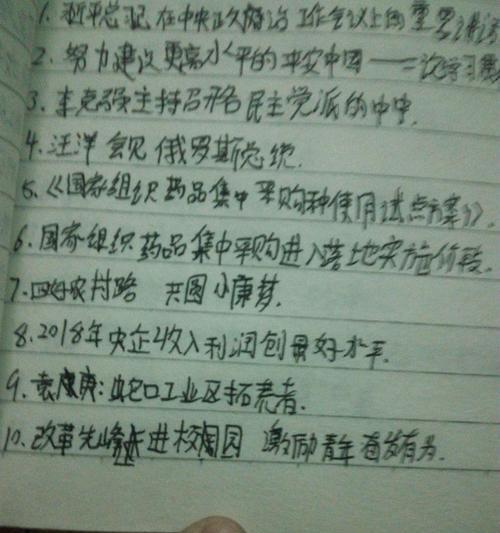 1. 习近平总书记在中央政法工作会议上的重要讲话
2. 努力建设更高水平的平安中国——二论学习
3. 李克强主持召开各民主党派的中中.
4. 汪洋会见俄罗斯总统.
5. 《国家组织药品集中采购种使用试点方案》.
6. 国家组织药品集中采购进入落地实施阶段.
7. 四好农村路 共圆小康梦.
8. 2018年央企收入利润创最好水平.
9. 袁庚:蛇口工业区拓荒者.
10. 改革先峰走进校园 激励青年奋发有为.